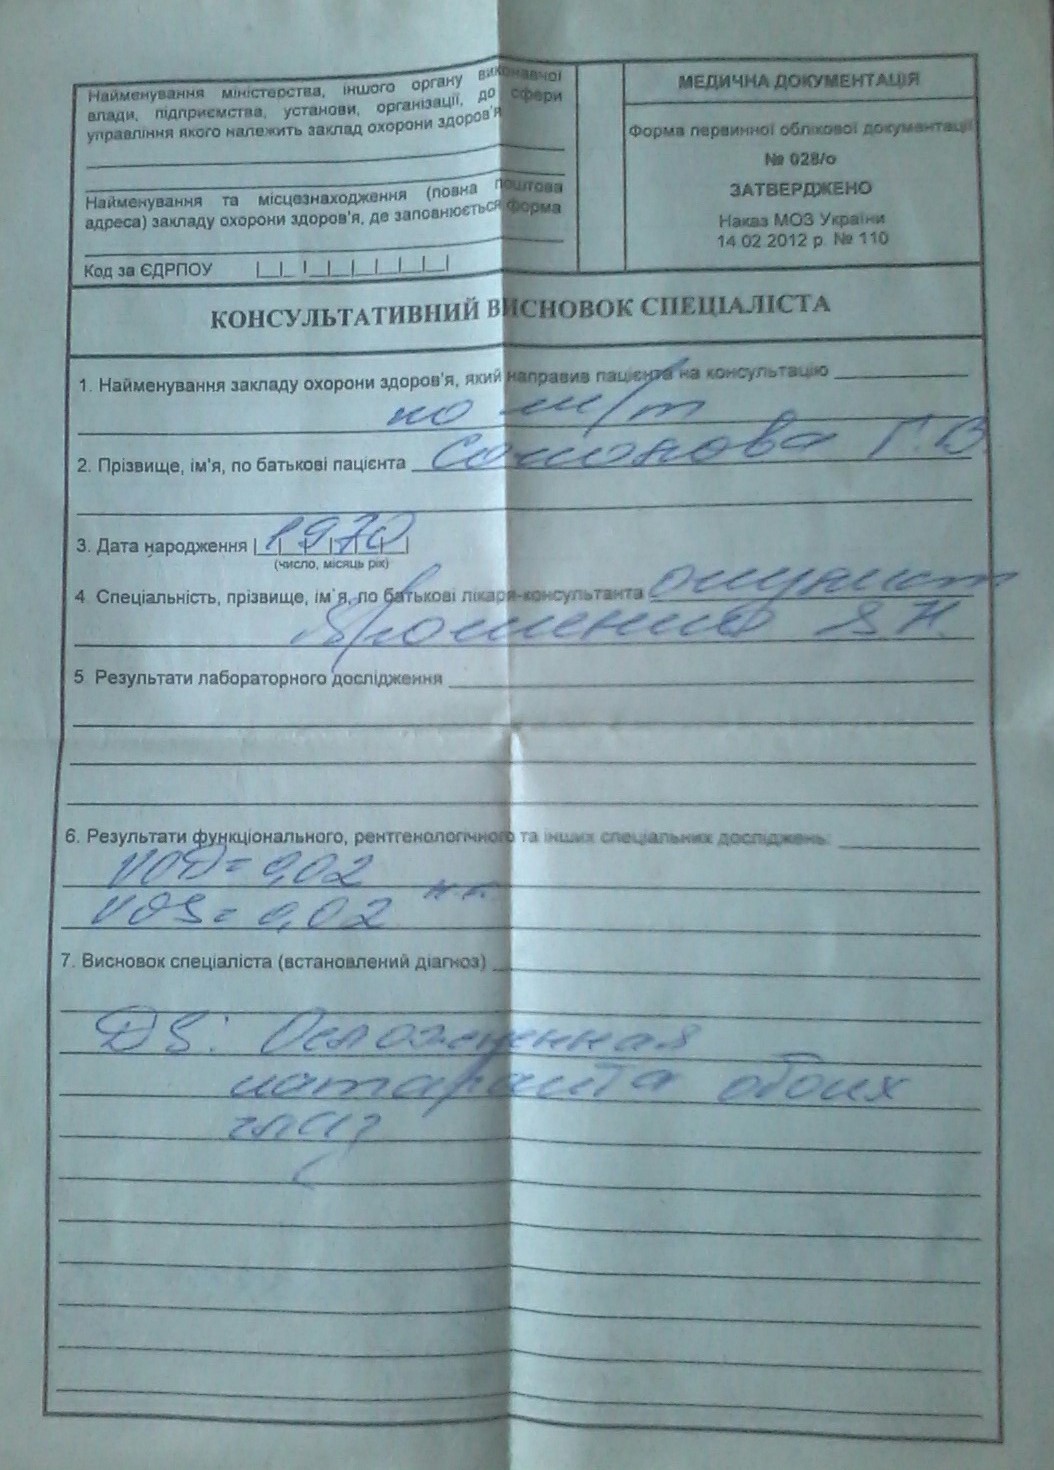 Найменування міністерства, іншого органу виконавчої
влади, підприємства, установи, організації, до сфери
управління якого належить заклад охорони здоров'я
Найменування та місцезнаходження (повна поштова
адреса) закладу охорони здоров'я, де заповнюється форма
Код за ЄДРПОУ
МЕДИЧНА ДОКУМЕНТАЦІЯ
Форма первинної облікової документації
№ 028/о
ЗАТВЕРДЖЕНО
Наказ МОЗ України
14.02.2012 р. № 110
КОНСУЛЬТАТИВНИЙ ВИСНОВОК СПЕЦІАЛІСТА
1. Найменування закладу охорони здоров'я, який направив пацієнта на консультацію
по м/т
2. Прізвище, ім'я, по батькові пацієнта Г.В.
3. Дата народження 1970
(число, місяць рік)
4. Спеціальність, прізвище, ім'я, по батькові лікаря-консультанта окулист
5. Результати лабораторного дослідження
6. Результати функціонального, рентгенологічного та інших спеціальних досліджень:
VOD = 0,02
VOS = 0,02 н.к.
7. Висновок спеціаліста (встановлений діагноз)
DS: Осложненная
катаракта обоих
глаз